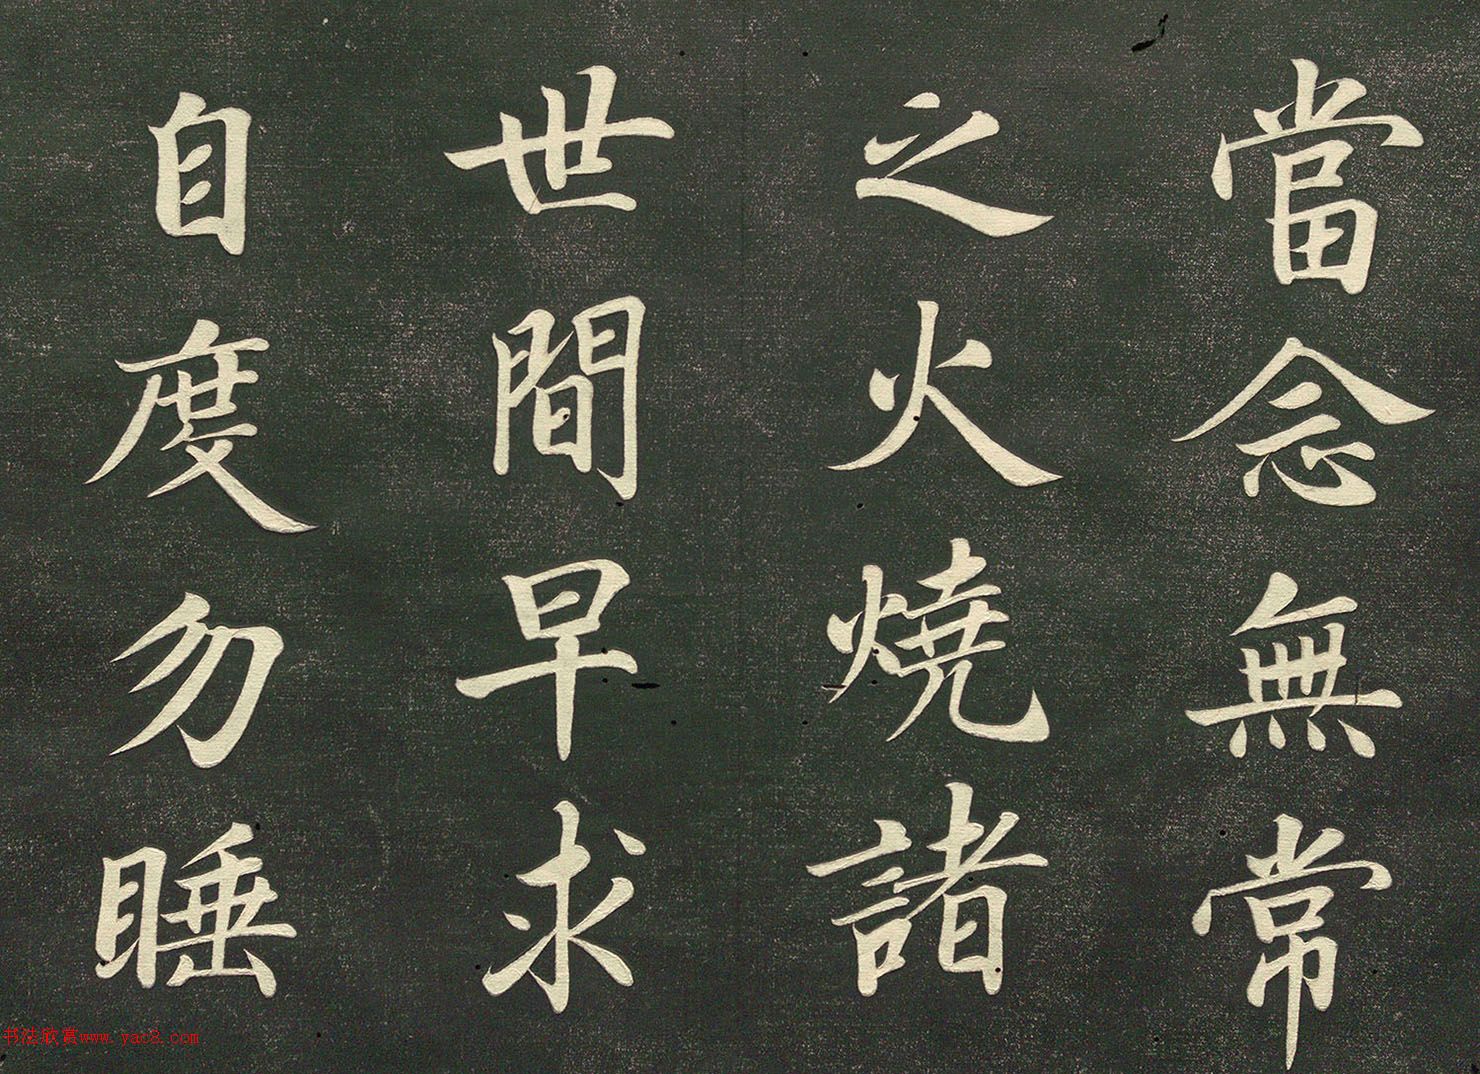 當念無常
之火燒諸
世間早求
自度勿睡
书法欣赏www.yac8.com